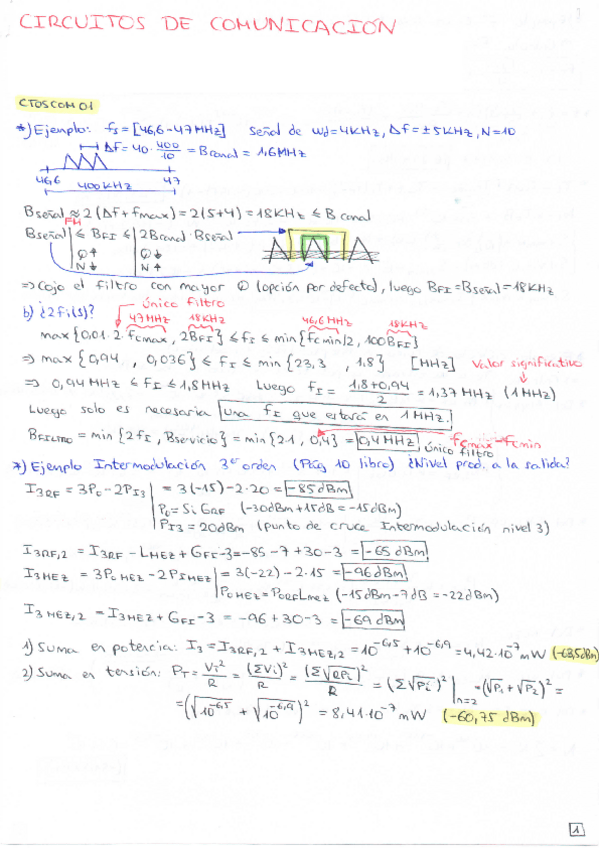 CIRCUITOS DE COMUNICACIÓN
CTOSCOM01
*) Ejemplo: fs = [46,6 - 47 MHz] Señal de Wd = 4KHz, Δf = ±5KHz, N = 10
Δf = 40 · 400/10 = Bcanal = 1,6MHz
46,6 47
400KHz
Bseñal ≈ 2(Δf + fmax) = 2(5+4) = 18KHz ≤ Bcanal
FM
Bseñal ≤ BFI ≤ 2Bcanal · Bseñal
Q↑ Q↓
N↓ N↑
⇒ Cojo el filtro con mayor Q (opción por defecto), luego BFI = Bseñal = 18KHz
b) ¿2fi(s)? único filtro
47MHz 18KHz 46,6MHz 18KHz
max{0,01·2·fcmax, 2BFI} ≤ fI ≤ min{fcmin/2, 100BFI}
⇒ max{0,94, 0,036} ≤ fI ≤ min{23,3, 1,8} [MHz] Valor significativo
⇒ 0,94MHz ≤ fI ≤ 1,8MHz Luego fI = (1,8+0,94)/2 = 1,37MHz (1MHz)
Luego solo es necesaria una fI que estará en 1MHz.
BFILTRO = min{2fI, Bservicio} = min{2·1, 0,4} = 0,4MHz, único filtro fcmax - fcmin
*) Ejemplo Intermodulación 3er orden (Pág 10 libro) ¿Nivel prod. a la salida?
I3RF = 3Po - 2PI3 = 3(-15) - 2·20 = -85dBm
Po = Si GRF (-30dBm + 15dB = -15dBm)
PI3 = 20dBm (punto de cruce Intermodulación nivel 3)
I3RF,2 = I3RF - LMEZ + GFI - 3 = -85 - 7 + 30 - 3 = -65dBm
I3MEZ = 3PoMEZ - 2PIMEZ = 3(-22) - 2·15 = -96dBm
PoMEZ = PoRF LMEZ (-15dBm - 7dB = -22dBm)
I3MEZ,2 = I3MEZ + GFI - 3 = -96 + 30 - 3 = -69dBm
1) Suma en potencia: I3 = I3RF,2 + I3MEZ,2 = 10^-6,5 + 10^-6,9 = 4,42·10^-7 mW (-63,5dBm)
2) Suma en tensión: PT = Vi²/R = (ΣVi)²/R = (Σ√RPi)²/R = (Σ√Pi)² |n=2 = (√P1 + √P2)² =
= (√10^-6,5 + √10^-6,9)² = 8,41·10^-7 mW (-60,75 dBm)
1